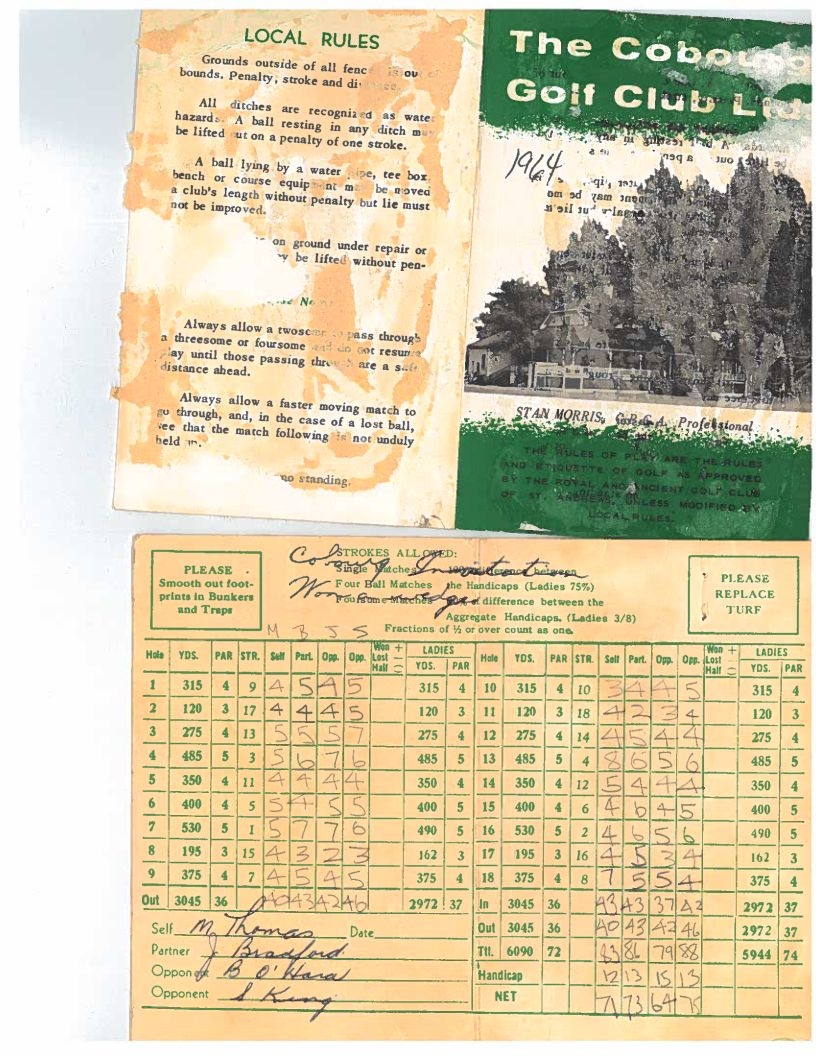 LOCAL RULES
Grounds outside of all fenc is ou of
bounds. Penalty, stroke and di
All ditches are recognized as water
hazards. A ball resting in any ditch may
be lifted out on a penalty of one stroke.
A ball lying by a water pipe, tee box,
bench or course equipment may be moved
a club's length without penalty but lie must
not be improved.
on ground under repair or
be lifted without pen-
Always allow a twosome to pass through
a threesome or foursome and do not resume
play until those passing through are a safe
distance ahead.
Always allow a faster moving match to
go through, and, in the case of a lost ball,
see that the match following is not unduly
held up.
no standing.
The Cobourg
Golf Club Ltd
1964
STAN MORRIS, C.P.G.A. Professional
THE RULES OF PLAY ARE THE RULES
AND ETIQUETTE OF GOLF AS APPROVED
BY THE ROYAL AND ANCIENT GOLF CLUB
OF ST. ANDREWS, UNLESS MODIFIED BY
LOCAL RULES.
PLEASE
Smooth out foot-
prints in Bunkers
and Traps
Cobourg Invitation
STROKES ALLOWED:
Single Matches 100% difference between
Four Ball Matches the Handicaps (Ladies 75%)
Foursome Matches difference between the
Aggregate Handicaps. (Ladies 3/8)
Fractions of ½ or over count as one.
PLEASE
REPLACE
TURF
M B J S
Hole YDS. PAR STR. Self Part. Opp. Opp. Won + Lost — Half = LADIES YDS. PAR Hole YDS. PAR STR. Self Part. Opp. Opp. Won + Lost — Half = LADIES YDS. PAR
1 315 4 9 4 5 4 5 315 4 10 315 4 10 3 4 4 5 315 4
2 120 3 17 4 4 4 5 120 3 11 120 3 18 4 2 3 4 120 3
3 275 4 13 5 5 5 7 275 4 12 275 4 14 4 5 4 4 275 4
4 485 5 3 5 6 7 6 485 5 13 485 5 4 8 6 5 6 485 5
5 350 4 11 4 4 4 4 350 4 14 350 4 12 5 4 4 4 350 4
6 400 4 5 5 4 5 5 400 5 15 400 4 6 4 6 4 5 400 5
7 530 5 1 5 7 7 6 490 5 16 530 5 2 4 6 5 6 490 5
8 195 3 15 4 3 2 3 162 3 17 195 3 16 4 5 3 4 162 3
9 375 4 7 4 5 4 5 375 4 18 375 4 8 7 5 5 4 375 4
Out 3045 36 40 43 42 46 2972 37 In 3045 36 43 43 37 42 2972 37
Out 3045 36 40 43 42 46 2972 37
Ttl. 6090 72 83 86 79 88 5944 74
Handicap 12 13 15 13
NET 71 73 64 75
Self M Thomas Date
Partner J Bradford
Opponent B O'Hara
Opponent S King